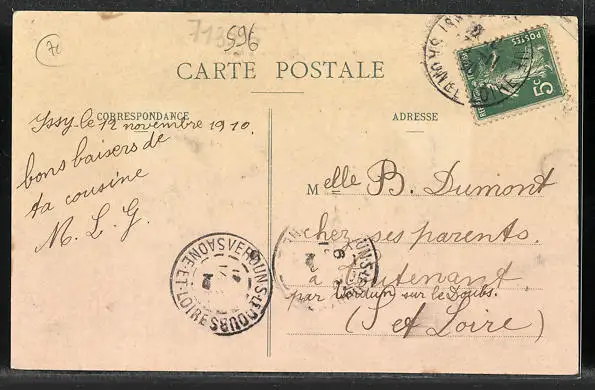 7c
596
CARTE POSTALE
CORRESPONDANCE
ADRESSE
Issy-le 12 novembre 1910.
bons baisers de
ta cousine
M. L. G.
Melle B. Dumont
chez ses parents.
à Pontenant.
par Verdun sur le Doubs.
(S et Loire)
POSTES
5c
VERDUN-S-LE-DOUBS
SAONE-ET-LOIRE